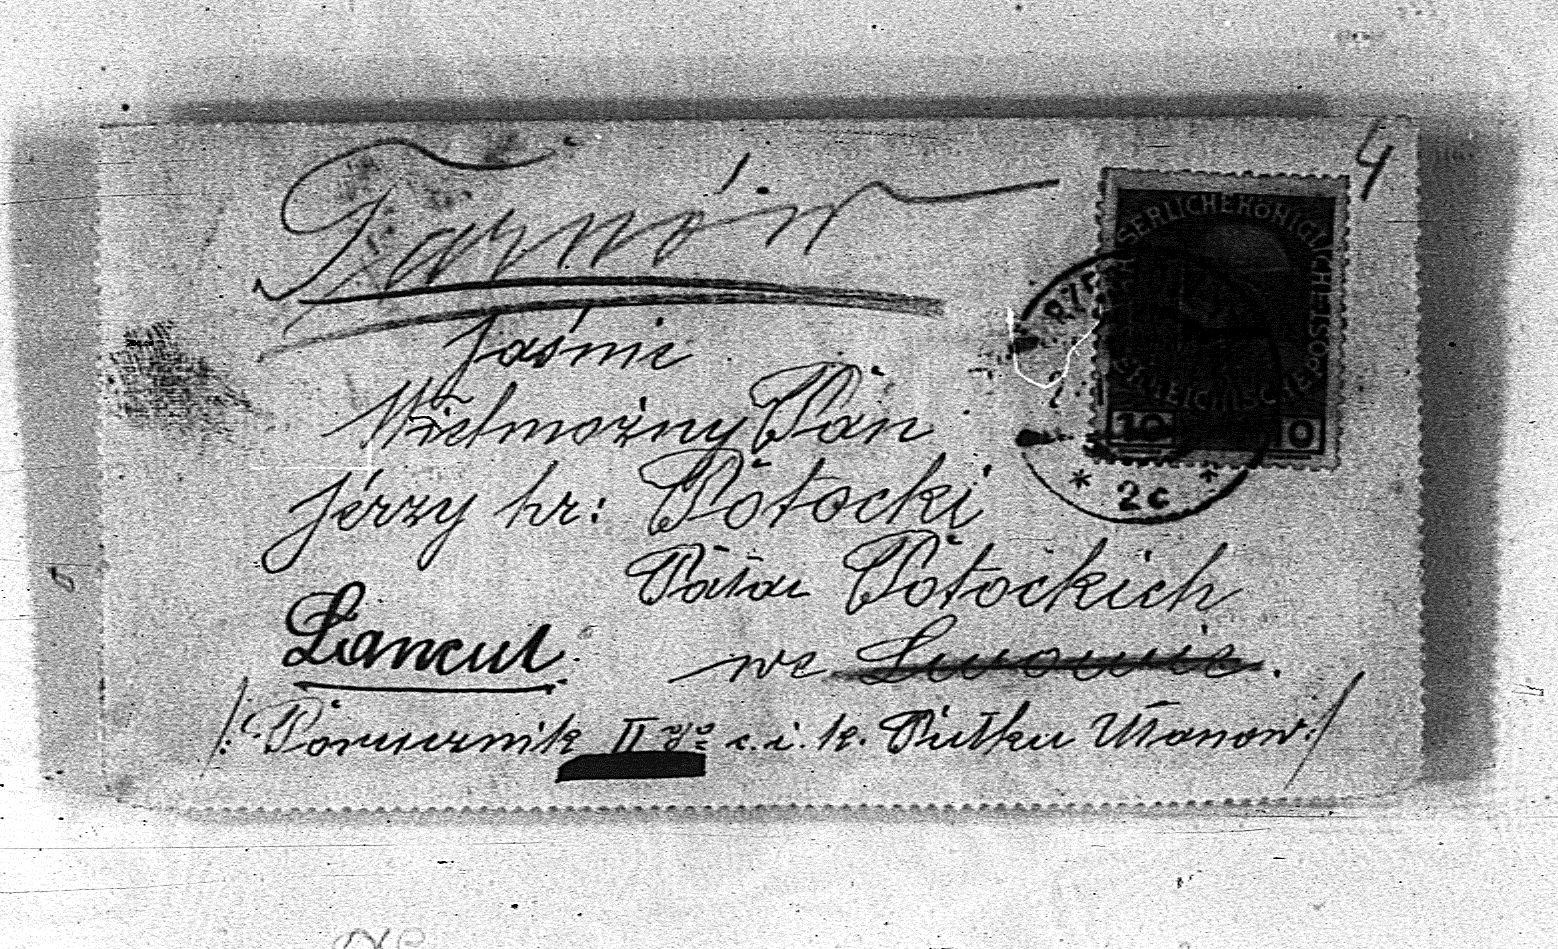 4
Tarnów
Jaśnie
Wielmożny Pan
Jerzy hr: Potocki
Pałac Potockich
Łancut
we Lwowie.
/: Porucznik II go c. i. k. Pułku Ułanow :/
SERLICHEKÖNIGLICHE
POST
REICHISCHE
10 10
RZE
* 2c *